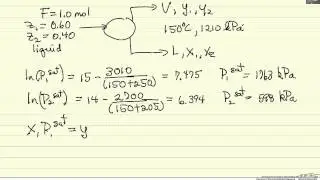 F = 1.0 mol
z₁ = 0.60
z₂ = 0.40
liquid
V, y₁, y₂
150°C, 1210 kPa
L, x₁, x₂
ln(P₁ˢᵃᵗ) = 15 - 3010/(150+250) = 7.475 P₁ˢᵃᵗ = 1763 kPa
ln(P₂ˢᵃᵗ) = 14 - 2700/(150+205) = 6.394 P₂ˢᵃᵗ = 598 kPa
x₁P₁ˢᵃᵗ = y